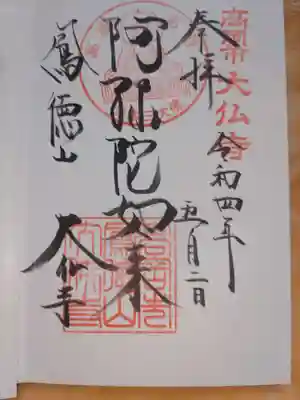 高岡大仏
奉拝
令和四年
五月二日
阿弥陀如来
鳳徳山
大仏寺